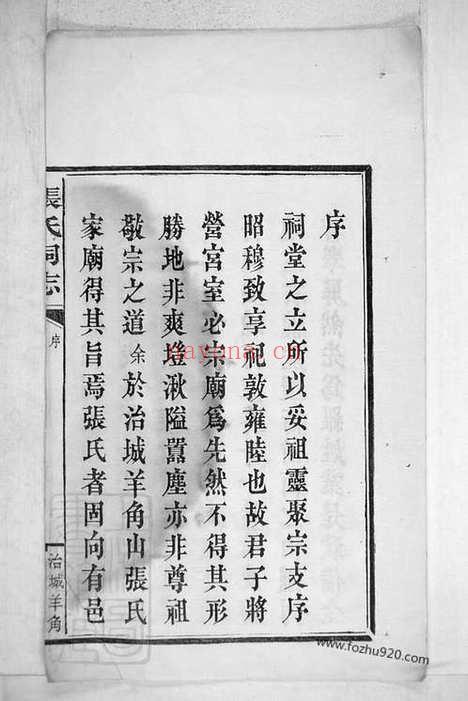 序
祠堂之立所以妥祖靈聚宗支序
昭穆致享祀敦雍陸也故君子將
營宮室必宗廟爲先然不得其形
勝地非爽塏湫隘囂塵亦非尊祖
敬宗之道余於治城羊角山張氏
家廟得其旨焉張氏者固向有邑
張氏祠志
序
治城羊角
nayona.cn
www.fozhu920.com